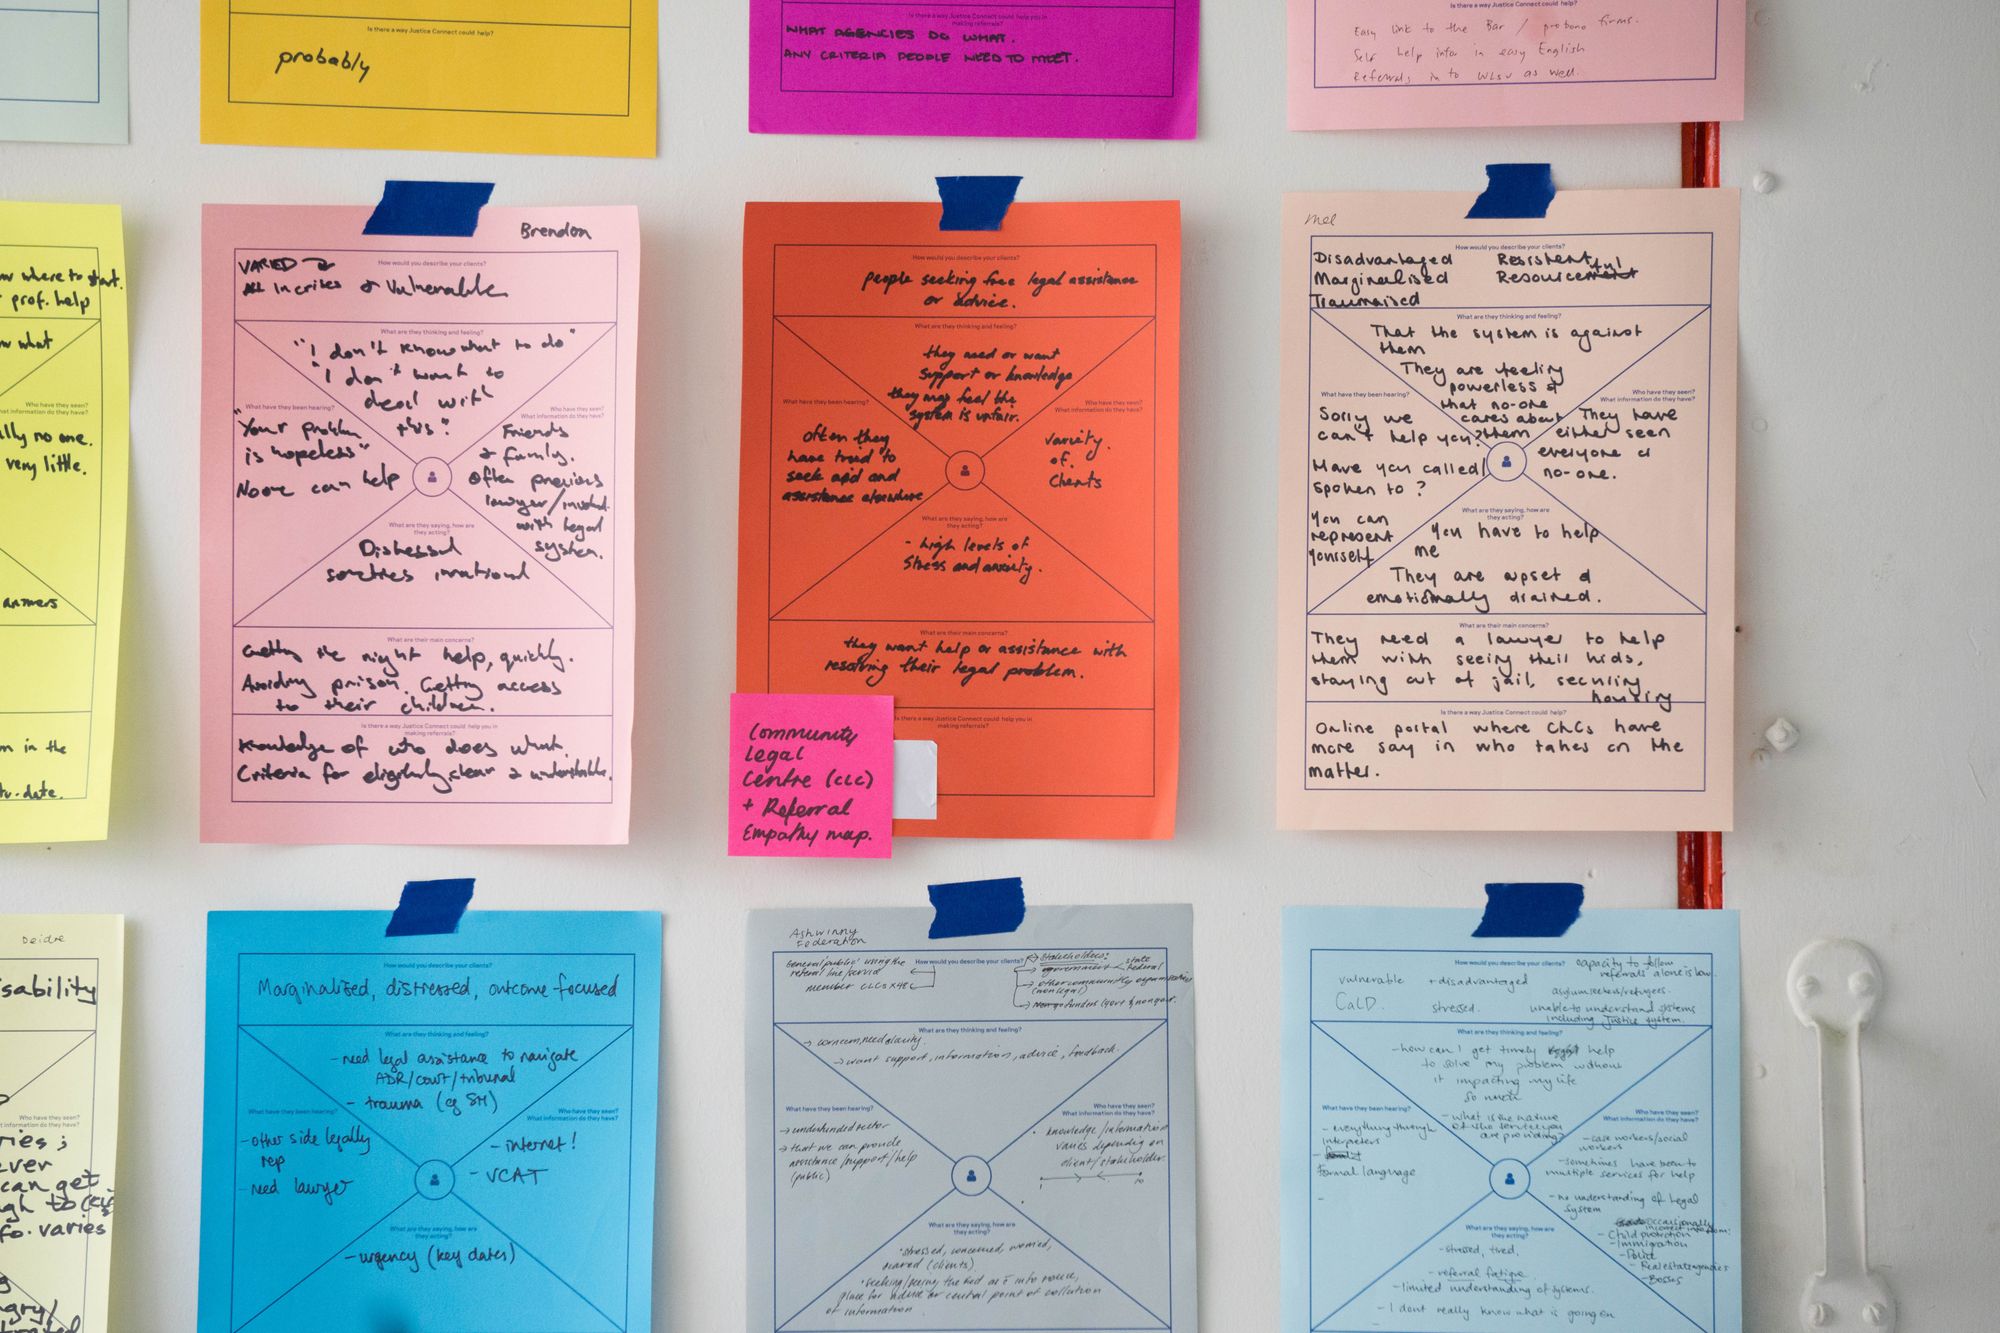 Is there a way Justice Connect could help?
probably
Is there a way Justice Connect could help you in
making referrals?
WHAT AGENCIES DO WHAT.
ANY CRITERIA PEOPLE NEED TO MEET.
Is there a way Justice Connect could help?
Easy link to the Bar / probono firms.
Self help infor in easy English
Referrals in to WLSV as well.
where to start.
prof. help
what
Who have they seen?
What information do they have?
no one.
very little.
answers
in the
date.
Brendon
How would you describe your clients?
VARIED
All In crises & Vulnerable
What are they thinking and feeling?
"I don't know what to do"
"I don't want to
deal with
this"
What have they been hearing?
"Your problem
is hopeless"
No one can help
Who have they seen?
What information do they have?
Friends
& family.
Often previous
lawyer/involved
with legal
system.
What are they saying, how are
they acting?
Distressed
sometimes irrational
What are their main concerns?
Getting the right help, quickly.
Avoiding prison. Getting access
to their children.
Is there a way Justice Connect could help you in
making referrals?
Knowledge of who does what.
Criteria for eligibility clear & understandable.
How would you describe your clients?
people seeking free legal assistance
or advice.
What are they thinking and feeling?
they need or want
support or knowledge
they may feel the
system is unfair.
What have they been hearing?
often they
have tried to
seek aid and
assistance elsewhere
Who have they seen?
What information do they have?
variety
of
clients
What are they saying, how are
they acting?
- high levels of
stress and anxiety.
What are their main concerns?
they want help or assistance with
resolving their legal problem.
Is there a way Justice Connect could help you in
making referrals?
Community
Legal
Centre (CLC)
+ Referral
Empathy map.
Mel
How would you describe your clients?
Disadvantaged Resistent
Marginalised Resourceful
Traumaised
What are they thinking and feeling?
That the system is against
them
They are feeling
powerless &
that no-one
cares about
them
What have they been hearing?
Sorry we
can't help you?
Have you called/
spoken to ?
You can
represent
yourself
Who have they seen?
What information do they have?
They have
either seen
everyone or
no-one.
What are they saying, how are
they acting?
You have to help
me
They are upset &
emotionally drained.
What are their main concerns?
They need a lawyer to help
them with seeing their kids,
staying out of jail, securing
housing
Is there a way Justice Connect could help you in
making referrals?
Online portal where CLCs have
more say in who takes on the
matter.
Deidre
sability
Who have they seen?
What information do they have?
can get
varies
How would you describe your clients?
Marginalised, distressed, outcome focused
What are they thinking and feeling?
- need legal assistance to navigate
ADR/court/tribunal
- trauma (eg SH)
What have they been hearing?
- other side legally
rep
- need lawyer
Who have they seen?
What information do they have?
- internet!
- VCAT
What are they saying, how are
they acting?
- urgency (key dates)
Ashwinny
Federation
How would you describe your clients?
General/public' using the
referral line/service
member CLCs x 48
Stakeholders:
government
state
federal
other community organisations
(non legal)
funders (govt & nongovt.
What are they thinking and feeling?
→ concern, need clarity
→ want support, information, advice, feedback.
What have they been hearing?
→ underfunded sector
→ that we can provide
assistance/support/help
(public)
Who have they seen?
What information do they have?
knowledge/information
varies depending on
client/stakeholder.
1 10
What are they saying, how are
they acting?
• stressed, concerned, worried,
scared (clients)
place for advice or central point of collation
of information
How would you describe your clients?
vulnerable + disadvantaged
CaLD. stressed.
capacity to follow
referrals alone is low.
asylum seekers/refugees.
unable to understand systems
including Justice system.
What are they thinking and feeling?
- how can I get timely help
to solve my problem without
it impacting my life
so much
- what is the nature
of the service you
are providing?
What have they been hearing?
- everything through
interpreters
formal language
Who have they seen?
What information do they have?
- case workers/social
workers
- sometimes have been to
multiple services for help
- no understanding of legal
system
occasionally
incorrect info from:
- Child protection
- Immigration
- Police
- Real estate agencies
- Bosses
What are they saying, how are
they acting?
- stressed, tired,
- referral fatigue
- limited understanding of systems.
- I dont really know what is going on